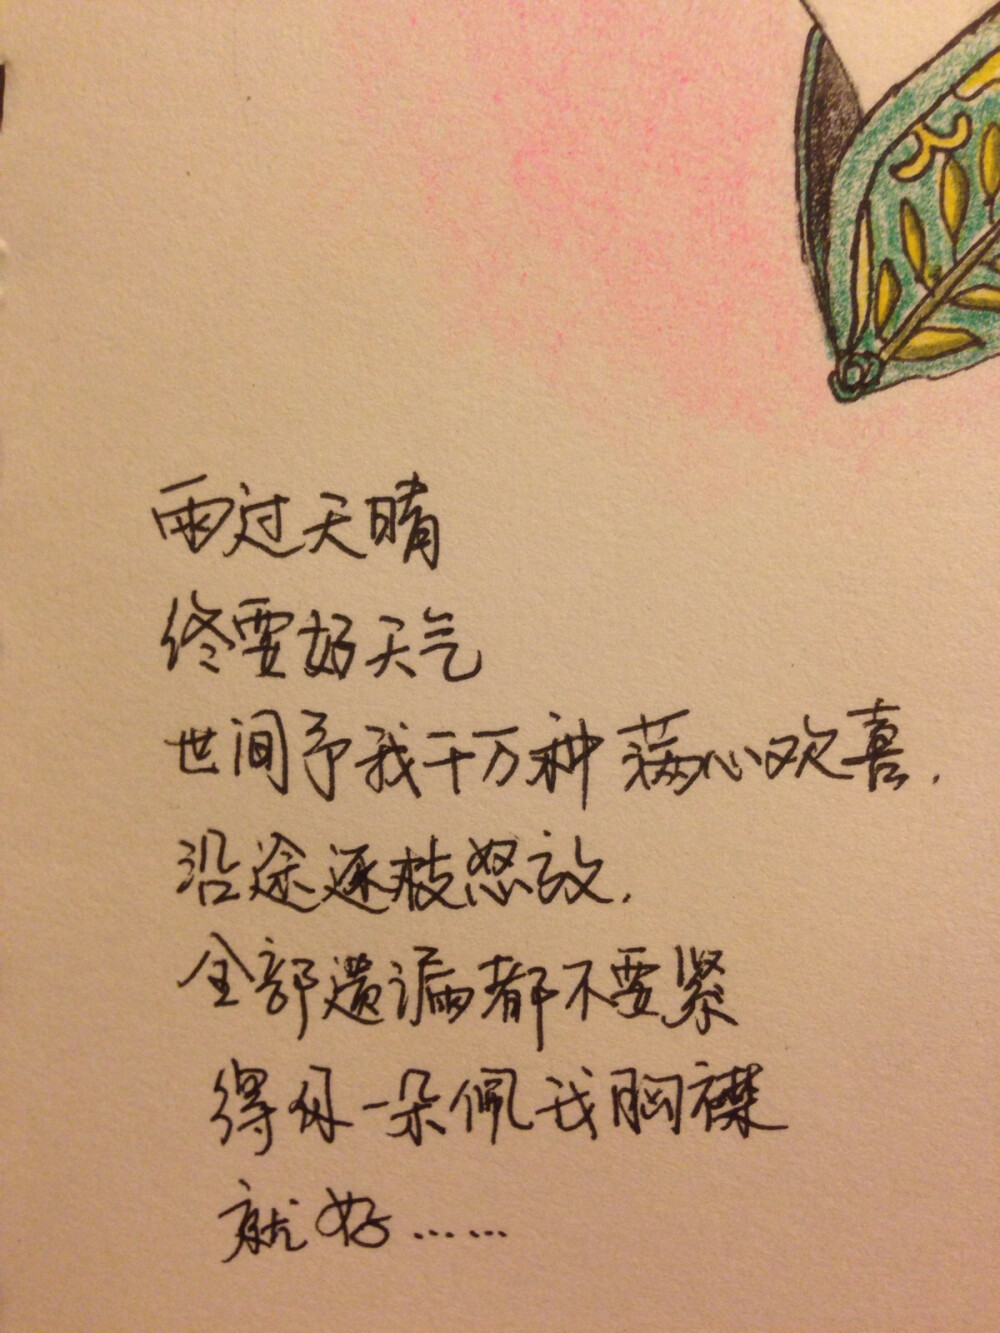 雨过天晴
终要好天气
世间予我千万种满心欢喜.
沿途逐枝怒放.
全部遗漏都不要紧
得你一朵佩我胸襟
就好……